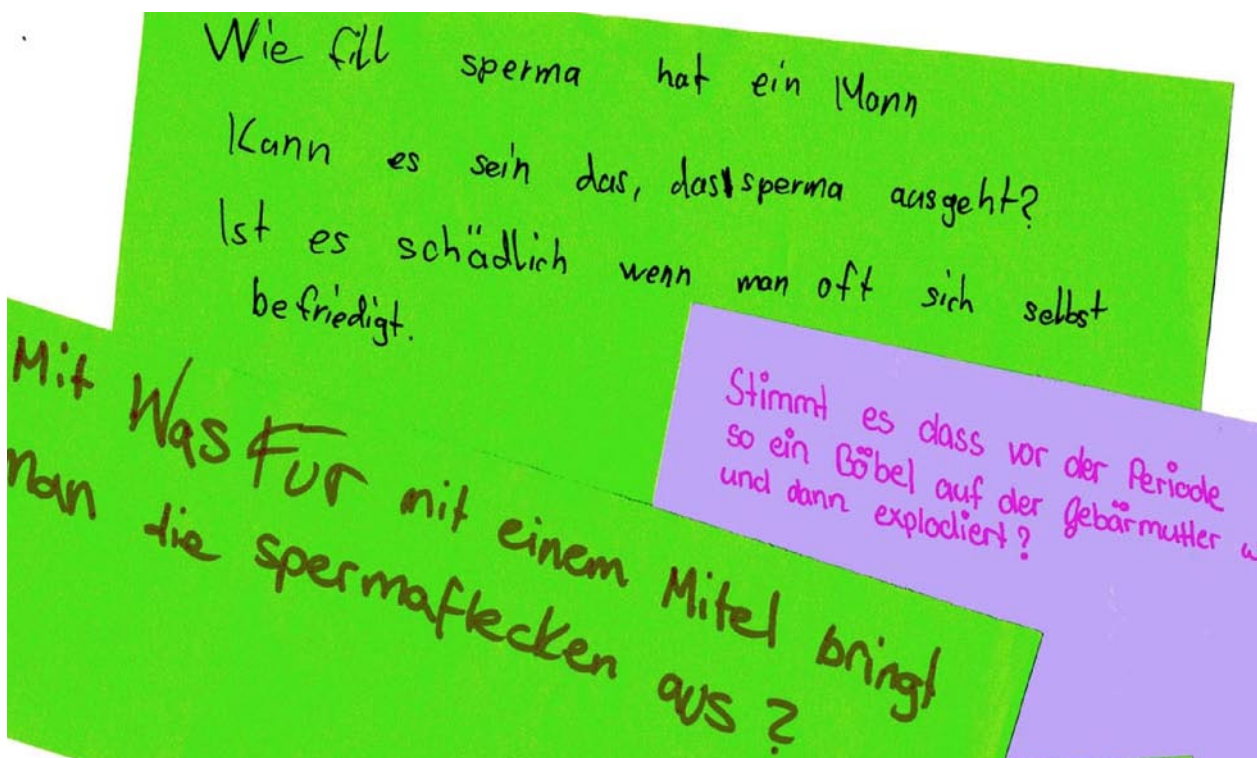 Wie fill sperma hat ein Mann
Kann es sein das, das sperma ausgeht?
Ist es schädlich wenn man oft sich selbst
befriedigt.
Stimmt es dass vor der Periode
so ein Böbel auf der Gebärmutter
und dann explodiert?
Mit Was Für mit einem Mitel bringt
man die spermaflecken aus?